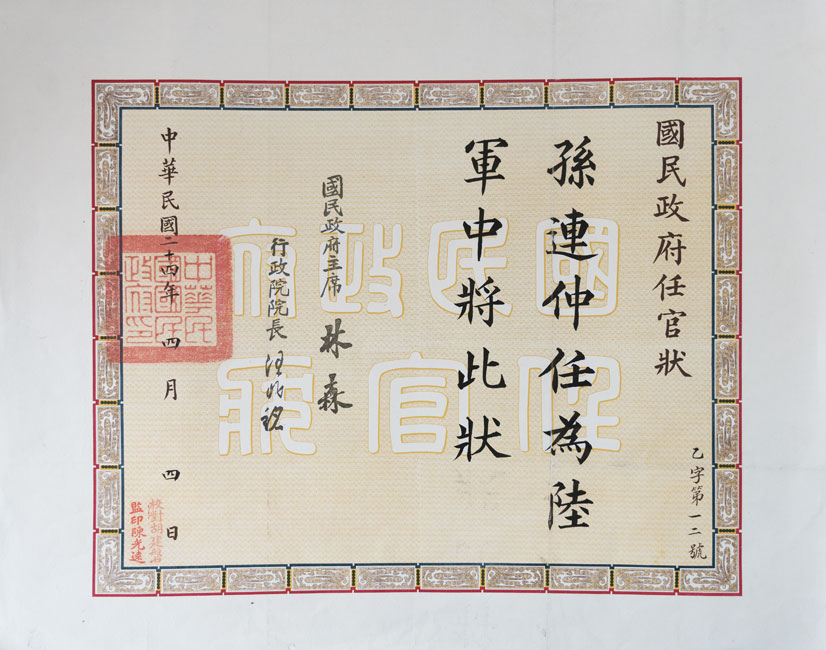 國民政府任官狀
乙字第一二號
孫連仲任為陸
軍中將此狀
國民政府主席 林森
行政院院長 汪兆銘
中華民國二十四年四月四日
中華民
國國民
政府印
監印陳光遠
國民政府
任官狀